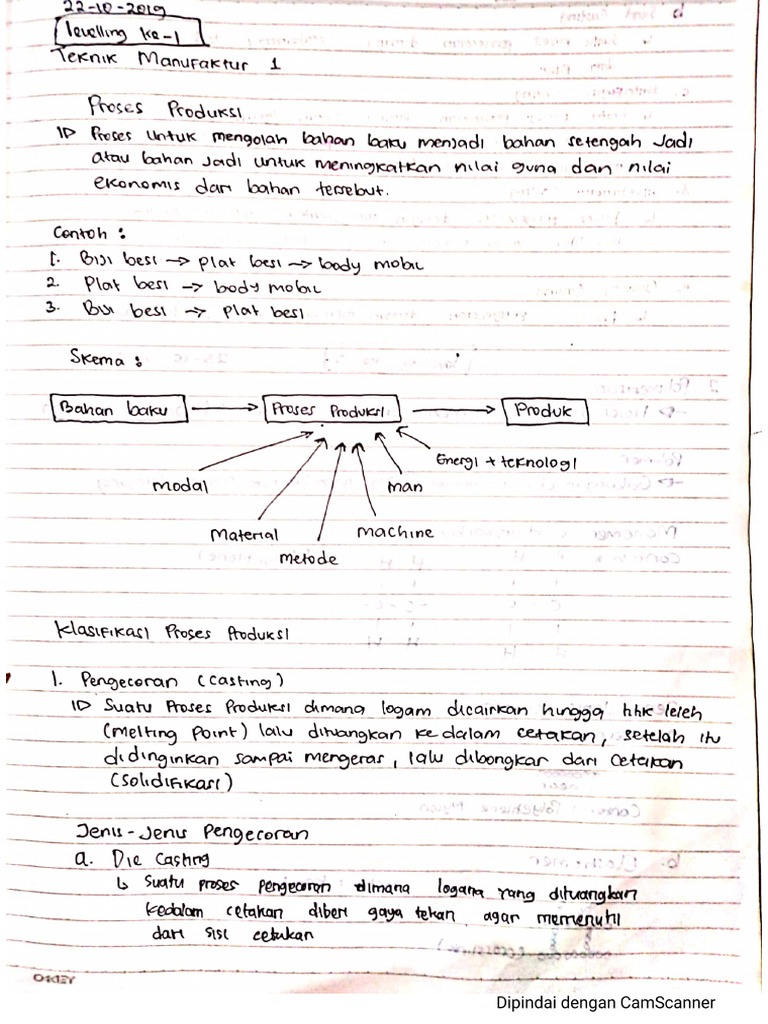 22-10-2019
levelling ke-1
Teknik Manufaktur 1
Proses Produksi
Proses untuk mengolah bahan baku menjadi bahan setengah Jadi
atau bahan Jadi untuk meningkatkan nilai guna dan nilai
ekonomis dari bahan tersebut.
Contoh :
1. Biji besi → plat besi → body mobil
2. Plat besi → body mobil
3. Biji besi → plat besi
Skema :
Bahan baku → Proses Produksi → Produk
Energi + teknologi
modal man
Material machine
metode
Klasifikasi Proses Produksi
1. Pengecoran (casting)
Suatu Proses Produksi dimana logam dicairkan hingga titik leleh
(melting point) lalu dituangkan kedalam cetakan, setelah itu
didinginkan sampai mengeras, lalu dibongkar dari Cetakan
(solidifikasi)
Jenis-Jenis Pengecoran
a. Die Casting
↳ suatu proses pengecoran dimana logam yang dituangkan
kedalam cetakan diberi gaya tekan agar memenuhi
dari sisi cetakan
Dipindai dengan CamScanner